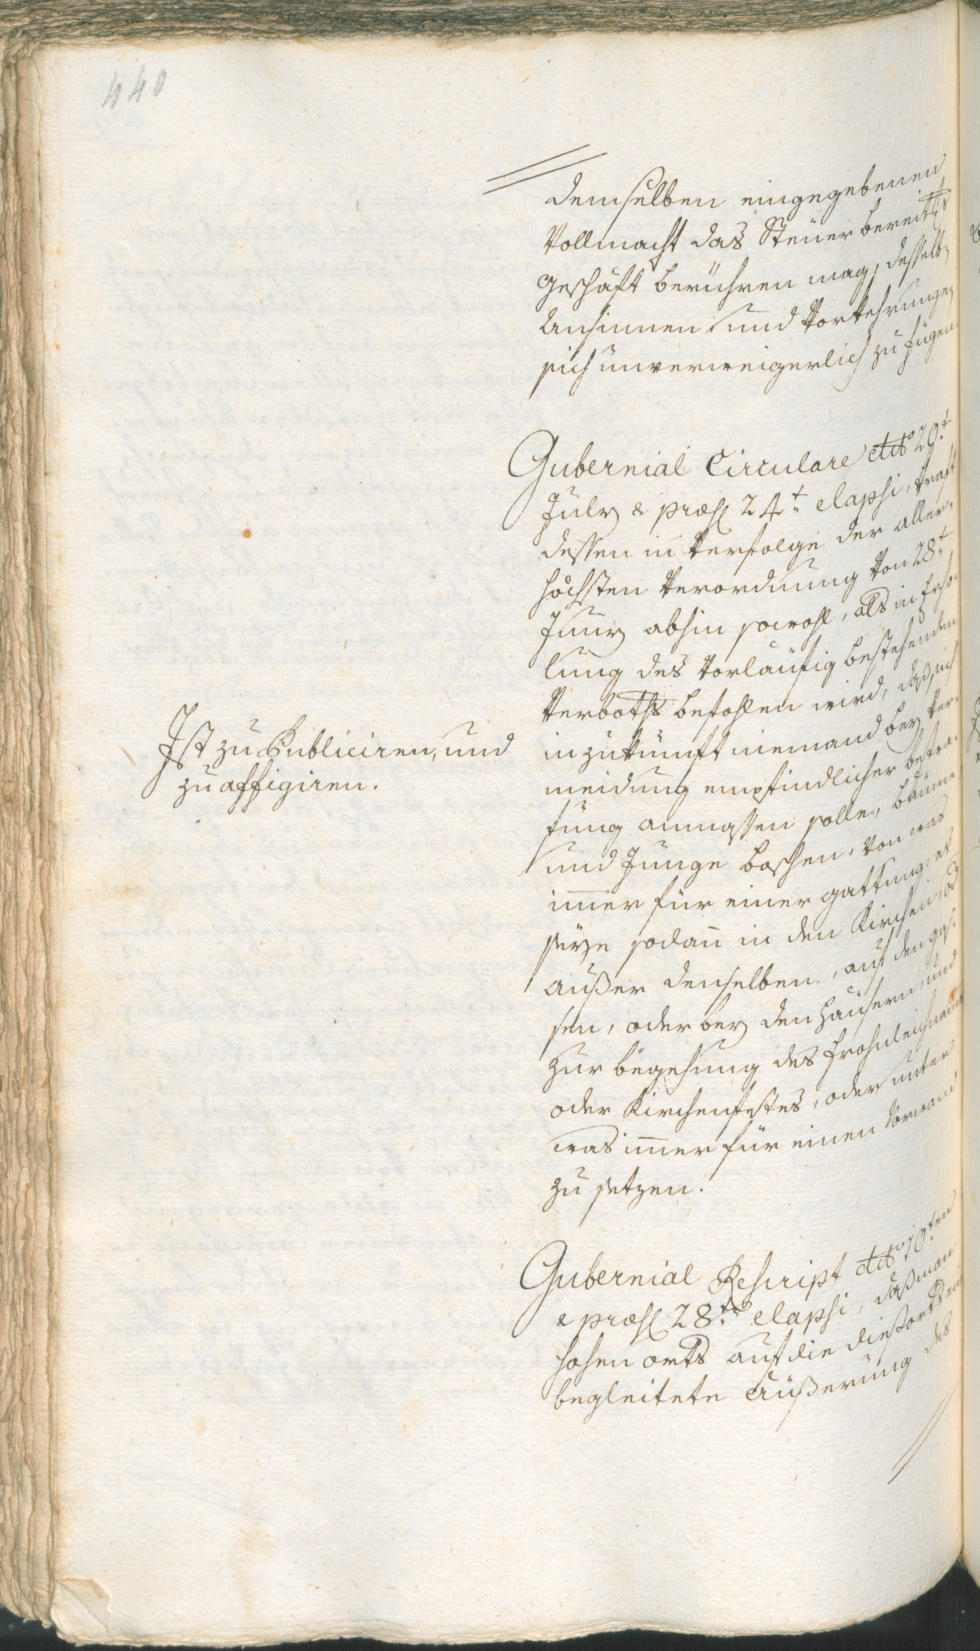 440
demselben eingegebenen
Vollmacht das Steuer bereits
geschäft berühren mag, desselb
Ansinnen und Vorkehrungen
sich unverweigerlich zu fügen
Gubernial Circulare dto 20t
July & praes 24t elapsi, kraft
dessen in Verfolge der aller
höchsten Verordnung von 28t
Juny abhin sowohl, als in Erho
lung des vorläufig bestehenden
Verboths befohlen wird, daß sich
in zukunft niemand bey Ver
meidung empfindlicher bestra
fung anmassen solle, bäume
und Junge boschen, von was
imer für einer gattung es
seye sodan in den Kirchen, od
außer denselben, auf den gas
sen, oder bey den häusern, und
zur begehung des frohnleichnams
oder Kirchenfestes, oder unter
was imer für einen Vorwand
zu setzen.
Ist zu Publiciren, und
zu affigiren.
Gubernial Rescript dto 10ten
& praes 28t elapsi, daß man
hohen orts auf die dießorts
begleitete Äußerung des